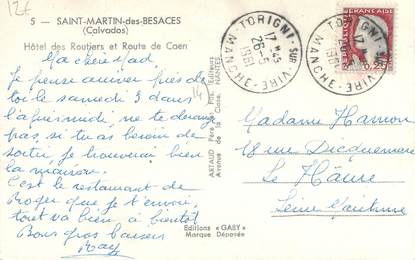 12€
5 — SAINT-MARTIN-des-BESACES
(Calvados)
Hôtel des Routiers et Route de Caen
Ma chère Mad,
Je pense arriver près de
toi le samedi 3 dans
l'après midi, ne te dérange
pas, si tu as besoin de
sortir, je trouverai bien
la maison.
C'est le restaurant de
Roger que je t'envoie,
tout va bien à bientôt
Bons gros baisers
Ray
ARTAUD Père et Fils, Éditeurs
Avenue de la Close, NANTES
Editions « GABY »
Marque Déposée
TORIGNI SUR VIRE
17 H45
26-5
1961
MANCHE
TORIGNI SUR VIRE
17
1961
MANCHE
0,25
Madame Hamon
18 rue Dicquemare
Le Hâvre
Seine Maritime